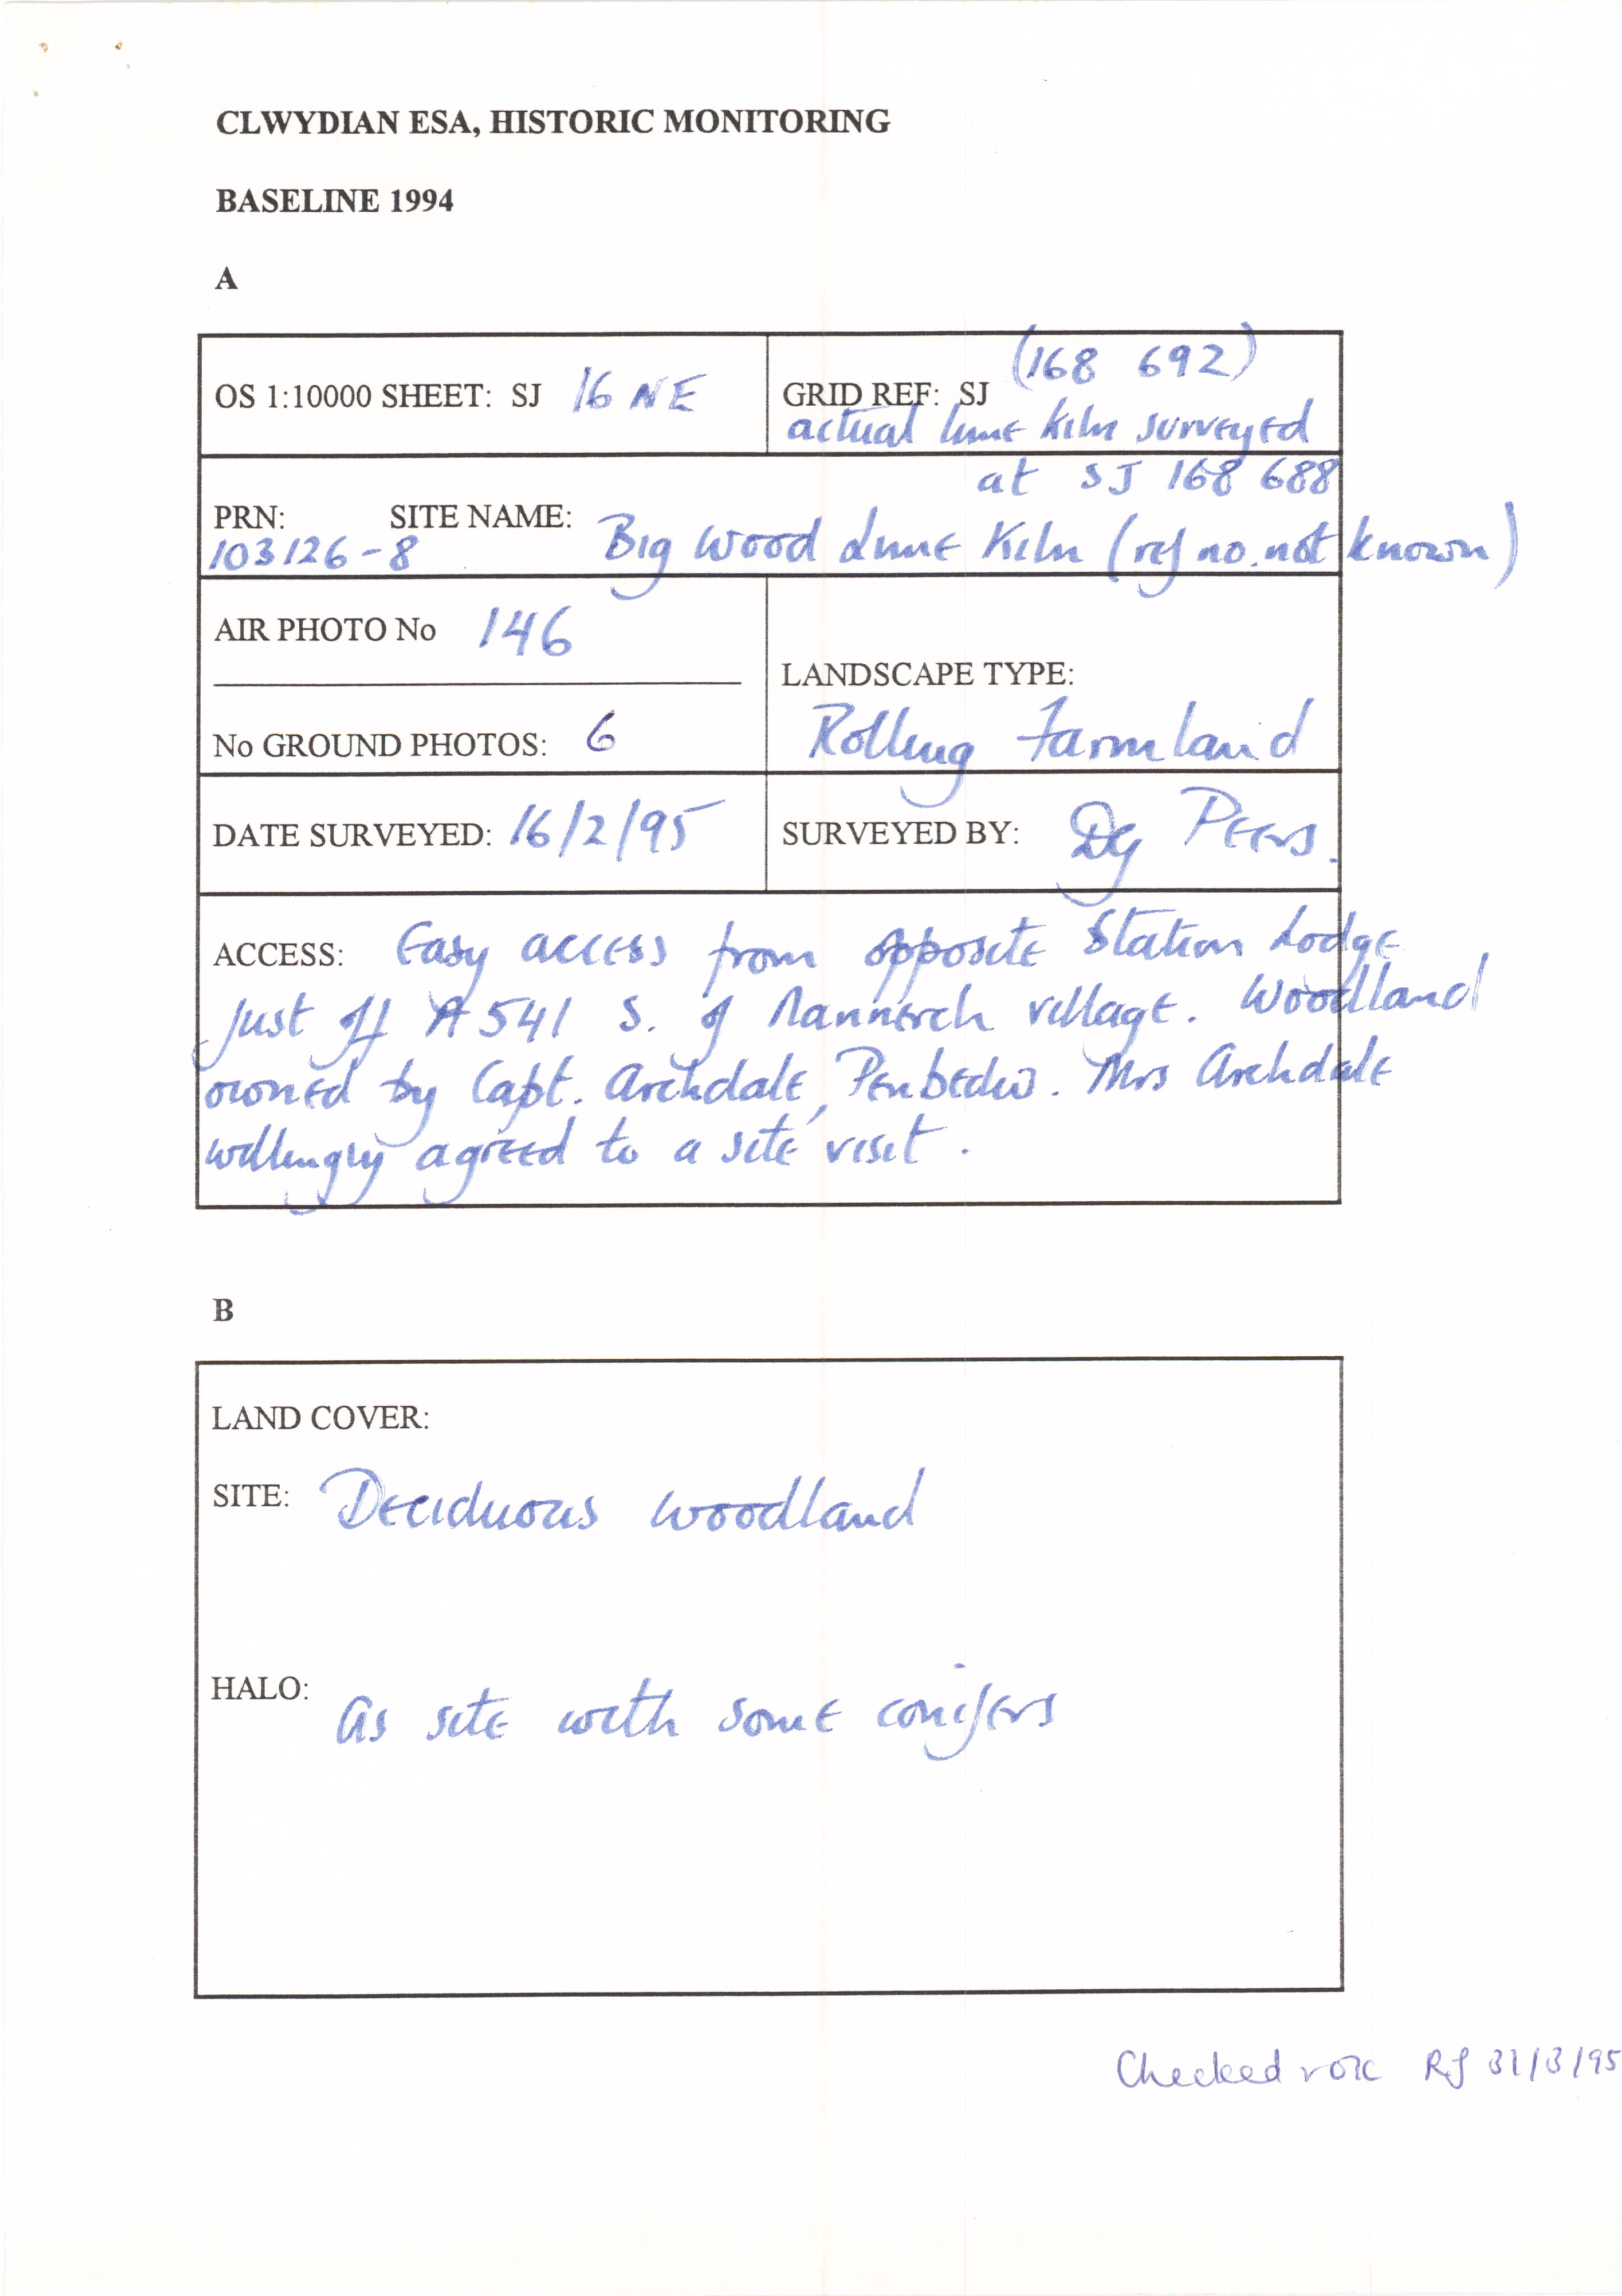 CLWYDIAN ESA, HISTORIC MONITORING
BASELINE 1994
A
OS 1:10000 SHEET: SJ 16 NE
GRID REF: SJ (168 692)
actual lime kiln surveyed
at SJ 168 688
PRN: SITE NAME:
103126-8 Big Wood Lime Kiln (ref no. not known)
AIR PHOTO No 146
No GROUND PHOTOS: 6
LANDSCAPE TYPE:
Rolling Farmland
DATE SURVEYED: 16/2/95
SURVEYED BY: DG Peers.
ACCESS: Easy access from opposite Station Lodge
just off A541 S. of Nannerch village. Woodland
owned by Capt. Archdale, Penbedw. Mrs Archdale
willingly agreed to a site visit.
B
LAND COVER:
SITE: Deciduous woodland
HALO: As site with some conifers
Checked RJ 31/3/95